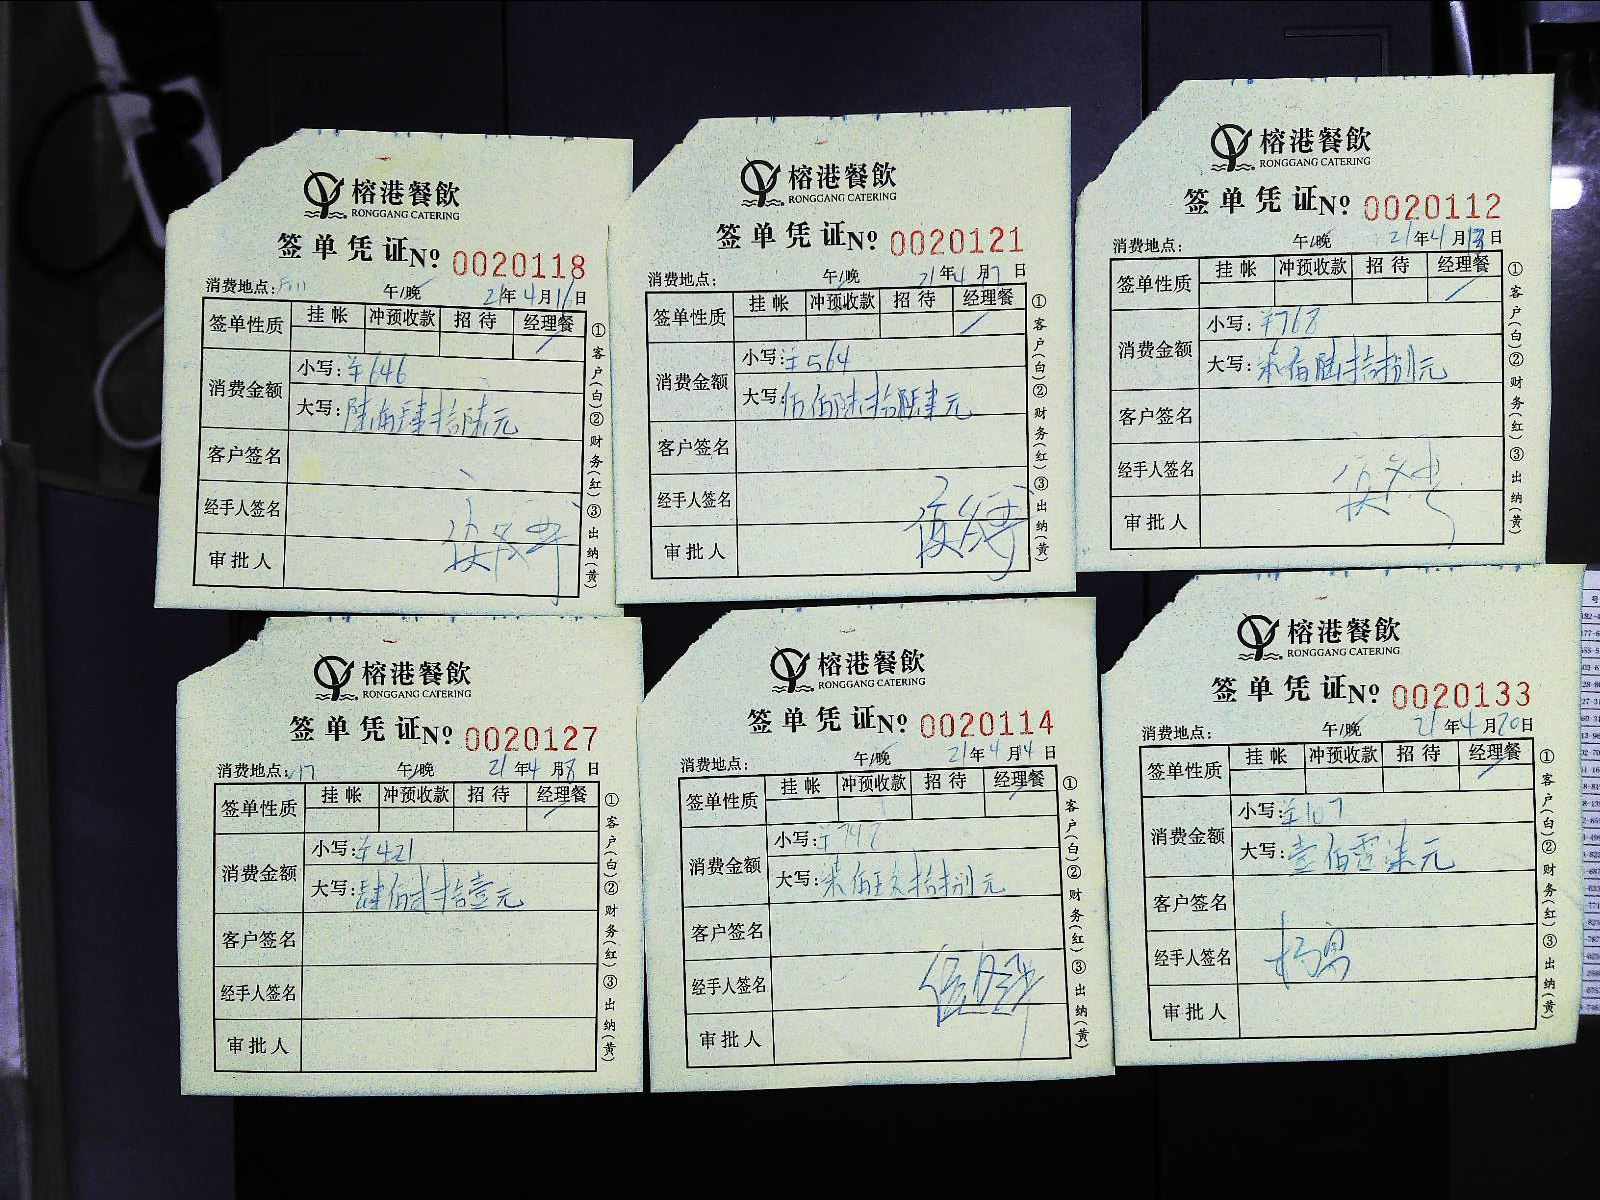 榕港餐飲
RONGGANG CATERING
签单凭证 Nº 0020118
消费地点: 午/晚 21年4月16日
签单性质 挂帐 冲预收款 招待 经理餐
消费金额
小写:¥646
大写:陆佰肆拾陆元
客户签名
经手人签名
审批人
①客户(白)②财务(红)③出纳(黄)
榕港餐飲
RONGGANG CATERING
签单凭证 Nº 0020121
消费地点: 午/晚 21年4月7日
签单性质 挂帐 冲预收款 招待 经理餐
消费金额
小写:¥564
大写:伍佰陆拾肆元
客户签名
经手人签名
审批人
①客户(白)②财务(红)③出纳(黄)
榕港餐飲
RONGGANG CATERING
签单凭证 Nº 0020112
消费地点: 午/晚 21年4月日
签单性质 挂帐 冲预收款 招待 经理餐
消费金额
小写:¥768
大写:柒佰陆拾捌元
客户签名
经手人签名
审批人
①客户(白)②财务(红)③出纳(黄)
榕港餐飲
RONGGANG CATERING
签单凭证 Nº 0020127
消费地点: 午/晚 21年4月8日
签单性质 挂帐 冲预收款 招待 经理餐
消费金额
小写:¥421
大写:肆佰贰拾壹元
客户签名
经手人签名
审批人
①客户(白)②财务(红)③出纳(黄)
榕港餐飲
RONGGANG CATERING
签单凭证 Nº 0020114
消费地点: 午/晚 21年4月4日
签单性质 挂帐 冲预收款 招待 经理餐
消费金额
小写:¥798
大写:柒佰玖拾捌元
客户签名
经手人签名
审批人
①客户(白)②财务(红)③出纳(黄)
榕港餐飲
RONGGANG CATERING
签单凭证 Nº 0020133
消费地点: 午/晚 21年4月20日
签单性质 挂帐 冲预收款 招待 经理餐
消费金额
小写:¥107
大写:壹佰零柒元
客户签名
经手人签名
审批人
①客户(白)②财务(红)③出纳(黄)